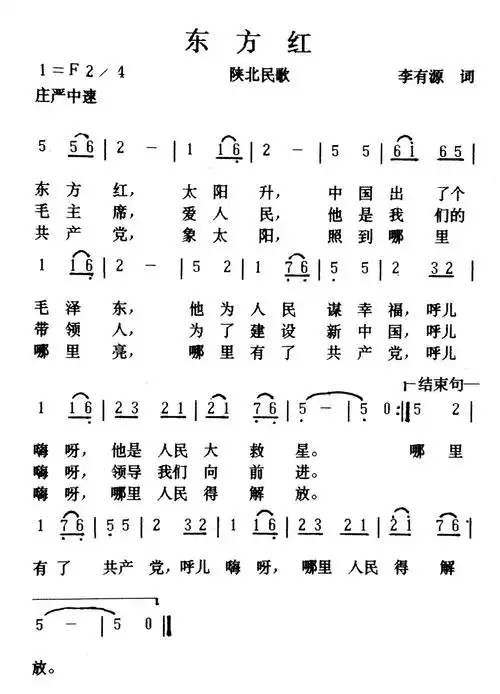 东方红
1=F 2/4 陕北民歌 李有源 词
庄严中速
5 56 | 2 - | 1 16 | 2 - | 5 5 | 61 65 |
东方红， 太阳升， 中国出了个
毛主席， 爱人民， 他是我们的
共产党， 象太阳， 照到哪里
1 16 | 2 - | 5 2 | 1 76 | 5 5 | 2 32 |
毛泽东， 他为人民谋幸福，呼儿
带领人， 为了建设新中国，呼儿
哪里亮， 哪里有了共产党，呼儿
结束句
1 16 | 23 21 | 21 76 | 5 - | 5 0 :‖ 5 2 |
嗨呀，他是人民大救星。 哪里
嗨呀，领导我们向前进。
嗨呀，哪里人民得解放。
1 76 | 55 | 2 32 | 1 16 | 23 21 | 21 76 |
有了共产党，呼儿嗨呀，哪里人民得解
5 - | 5 0 ‖
放。